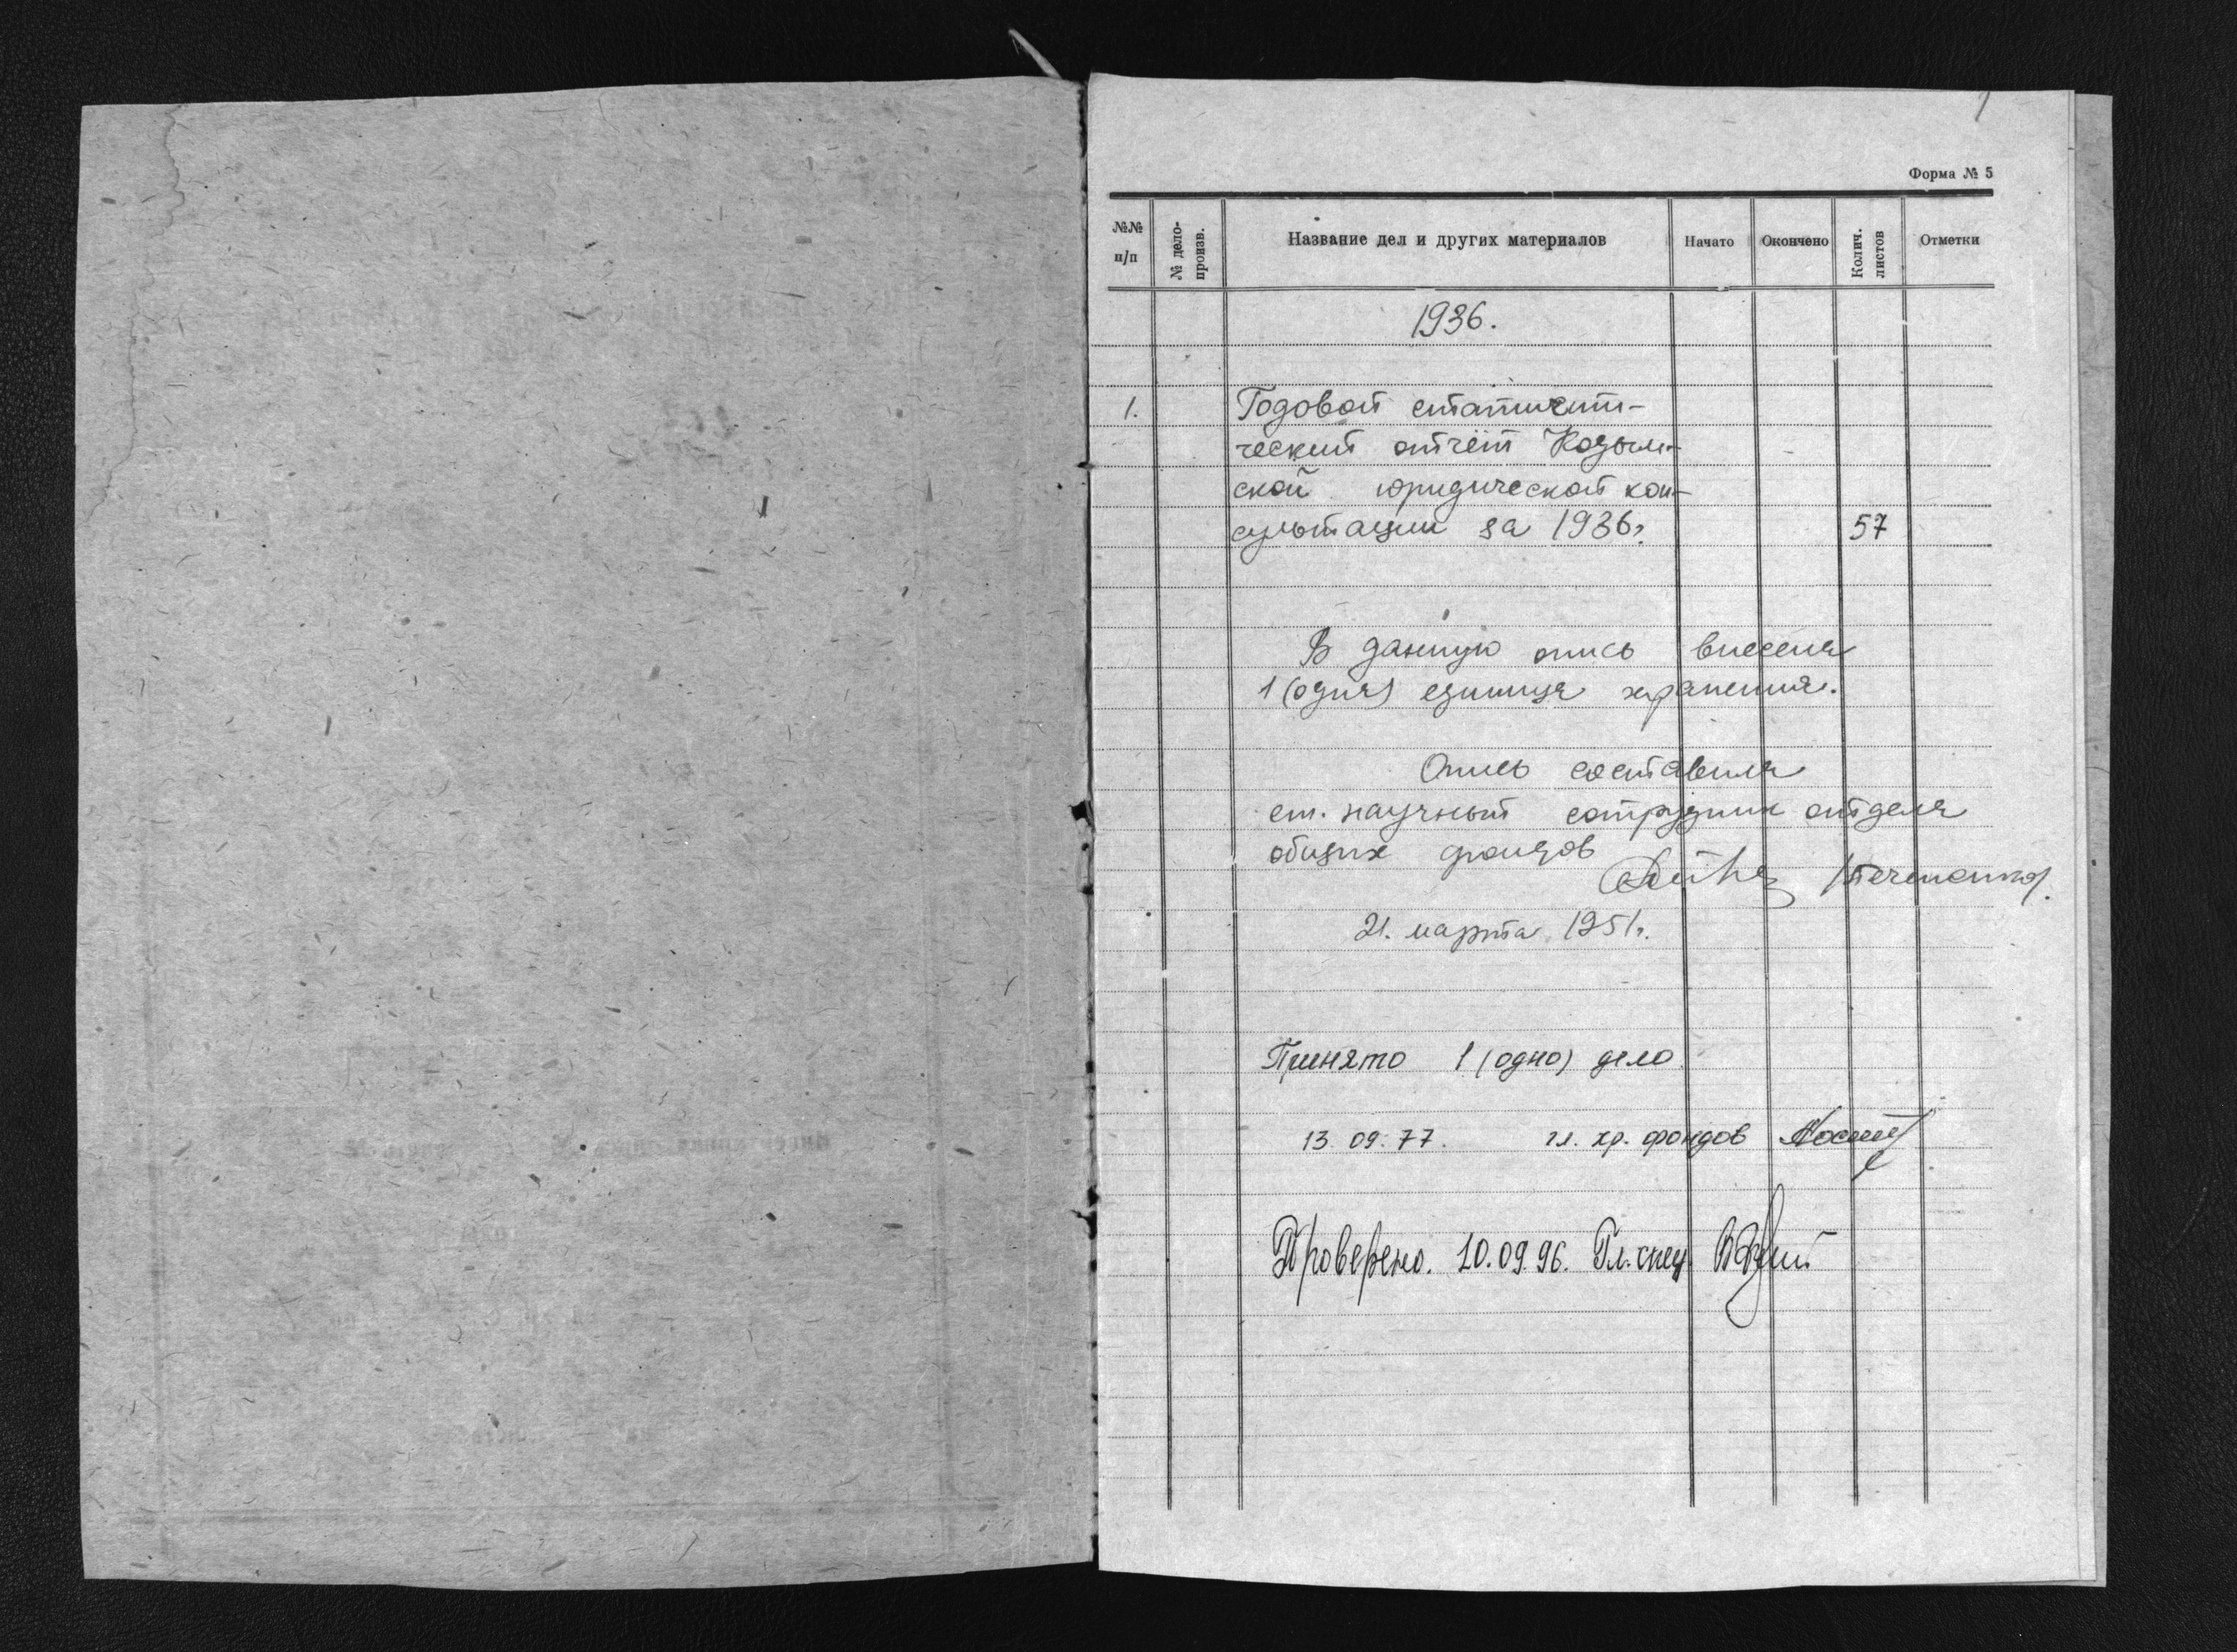 1
Форма № 5
№№ п/п
№ дело-произв.
Название дел и других материалов
Начато
Окончено
Колич. листов
Отметки
1936.
1. Годовой статисти-
ческий отчёт
ской юридической кон-
сультации за 1936г. 57
В данную опись внесена
1 (одна) единица хранения.
Опись составила
ст. научный сотрудник отдела
общих фондов
21. марта 1951г.
Принято 1 (одно) дело
13.09.77. гл. хр. фондов
Проверено. 10.09.96. Гл. спец